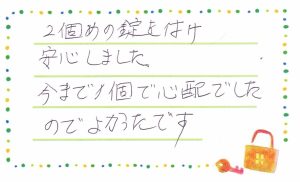 2個めの錠をはけ
安心しました。
今まで1個で心配でした
のでよかったです